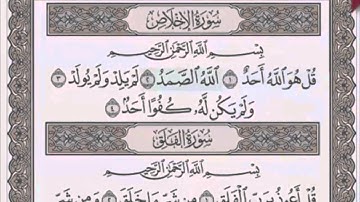 سُورَةُ الإِخْلَاصِ
بِسْمِ ٱللَّهِ ٱلرَّحْمَٰنِ ٱلرَّحِيمِ
قُلْ هُوَ ٱللَّهُ أَحَدٌ ١ ٱللَّهُ ٱلصَّمَدُ ٢ لَمْ يَلِدْ وَلَمْ يُولَدْ ٣
وَلَمْ يَكُن لَّهُۥ كُفُوًا أَحَدٌۢ ٤
سُورَةُ الفَلَقِ
بِسْمِ ٱللَّهِ ٱلرَّحْمَٰنِ ٱلرَّحِيمِ
قُلْ أَعُوذُ بِرَبِّ ٱلْفَلَقِ ١ مِن شَرِّ مَا خَلَقَ ٢ وَمِن شَرِّ